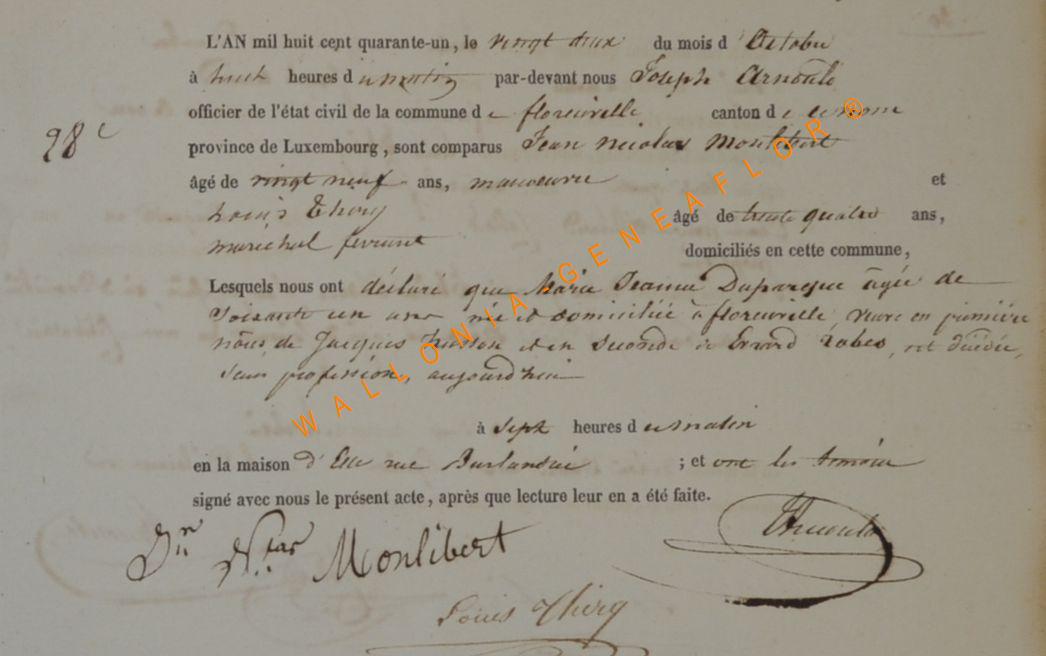 L'AN mil huit cent quarante-un, le vingt deux du mois d'Octobre
à huit heures du matin par-devant nous Joseph Arnould
officier de l'état civil de la commune de florenville canton de
28e
province de Luxembourg, sont comparus Jean Nicolas Monlibert
âgé de vingt neuf ans, manoeuvre et
Louis Thiry âgé de trente quatre ans,
maréchal ferrant domiciliés en cette commune,
Lesquels nous ont déclaré que Marie Jeanne Duparque âgée de
Soixante un ans née et domiciliée à florenville, veuve en première
nôces de Jacques et en seconde de Evrard Robes, est décédée,
Sans profession, aujourd'hui
à Sept heures du matin
en la maison d'Elle rue ; et ont les témoins
signé avec nous le présent acte, après que lecture leur en a été faite.
Jn Nlas Monlibert
Arnould
Louis Thiry
WALLONIA-GENEAFLOR®